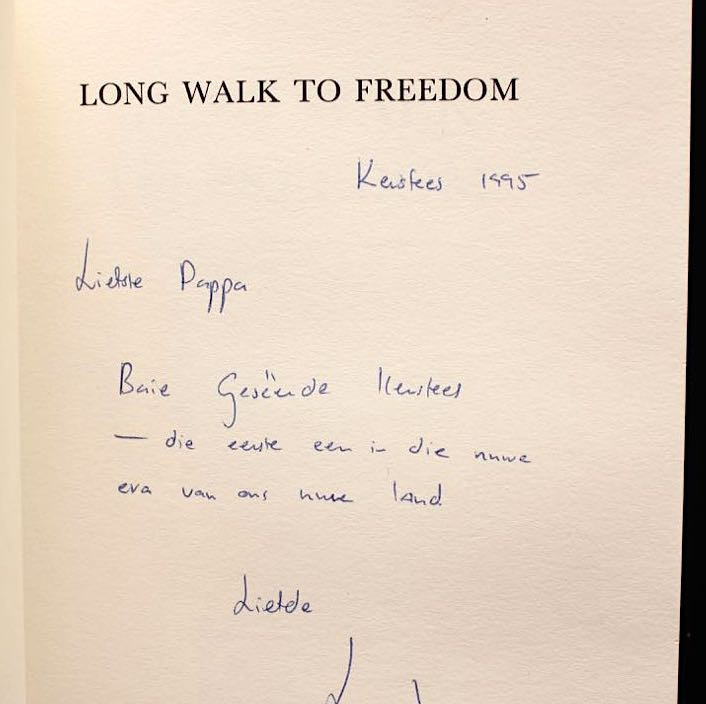 LONG WALK TO FREEDOM
Kersfees 1995
Liefste Pappa
Baie Geseënde Kersfees
— die eerste een in die nuwe
era van ons nuwe land
Liefde